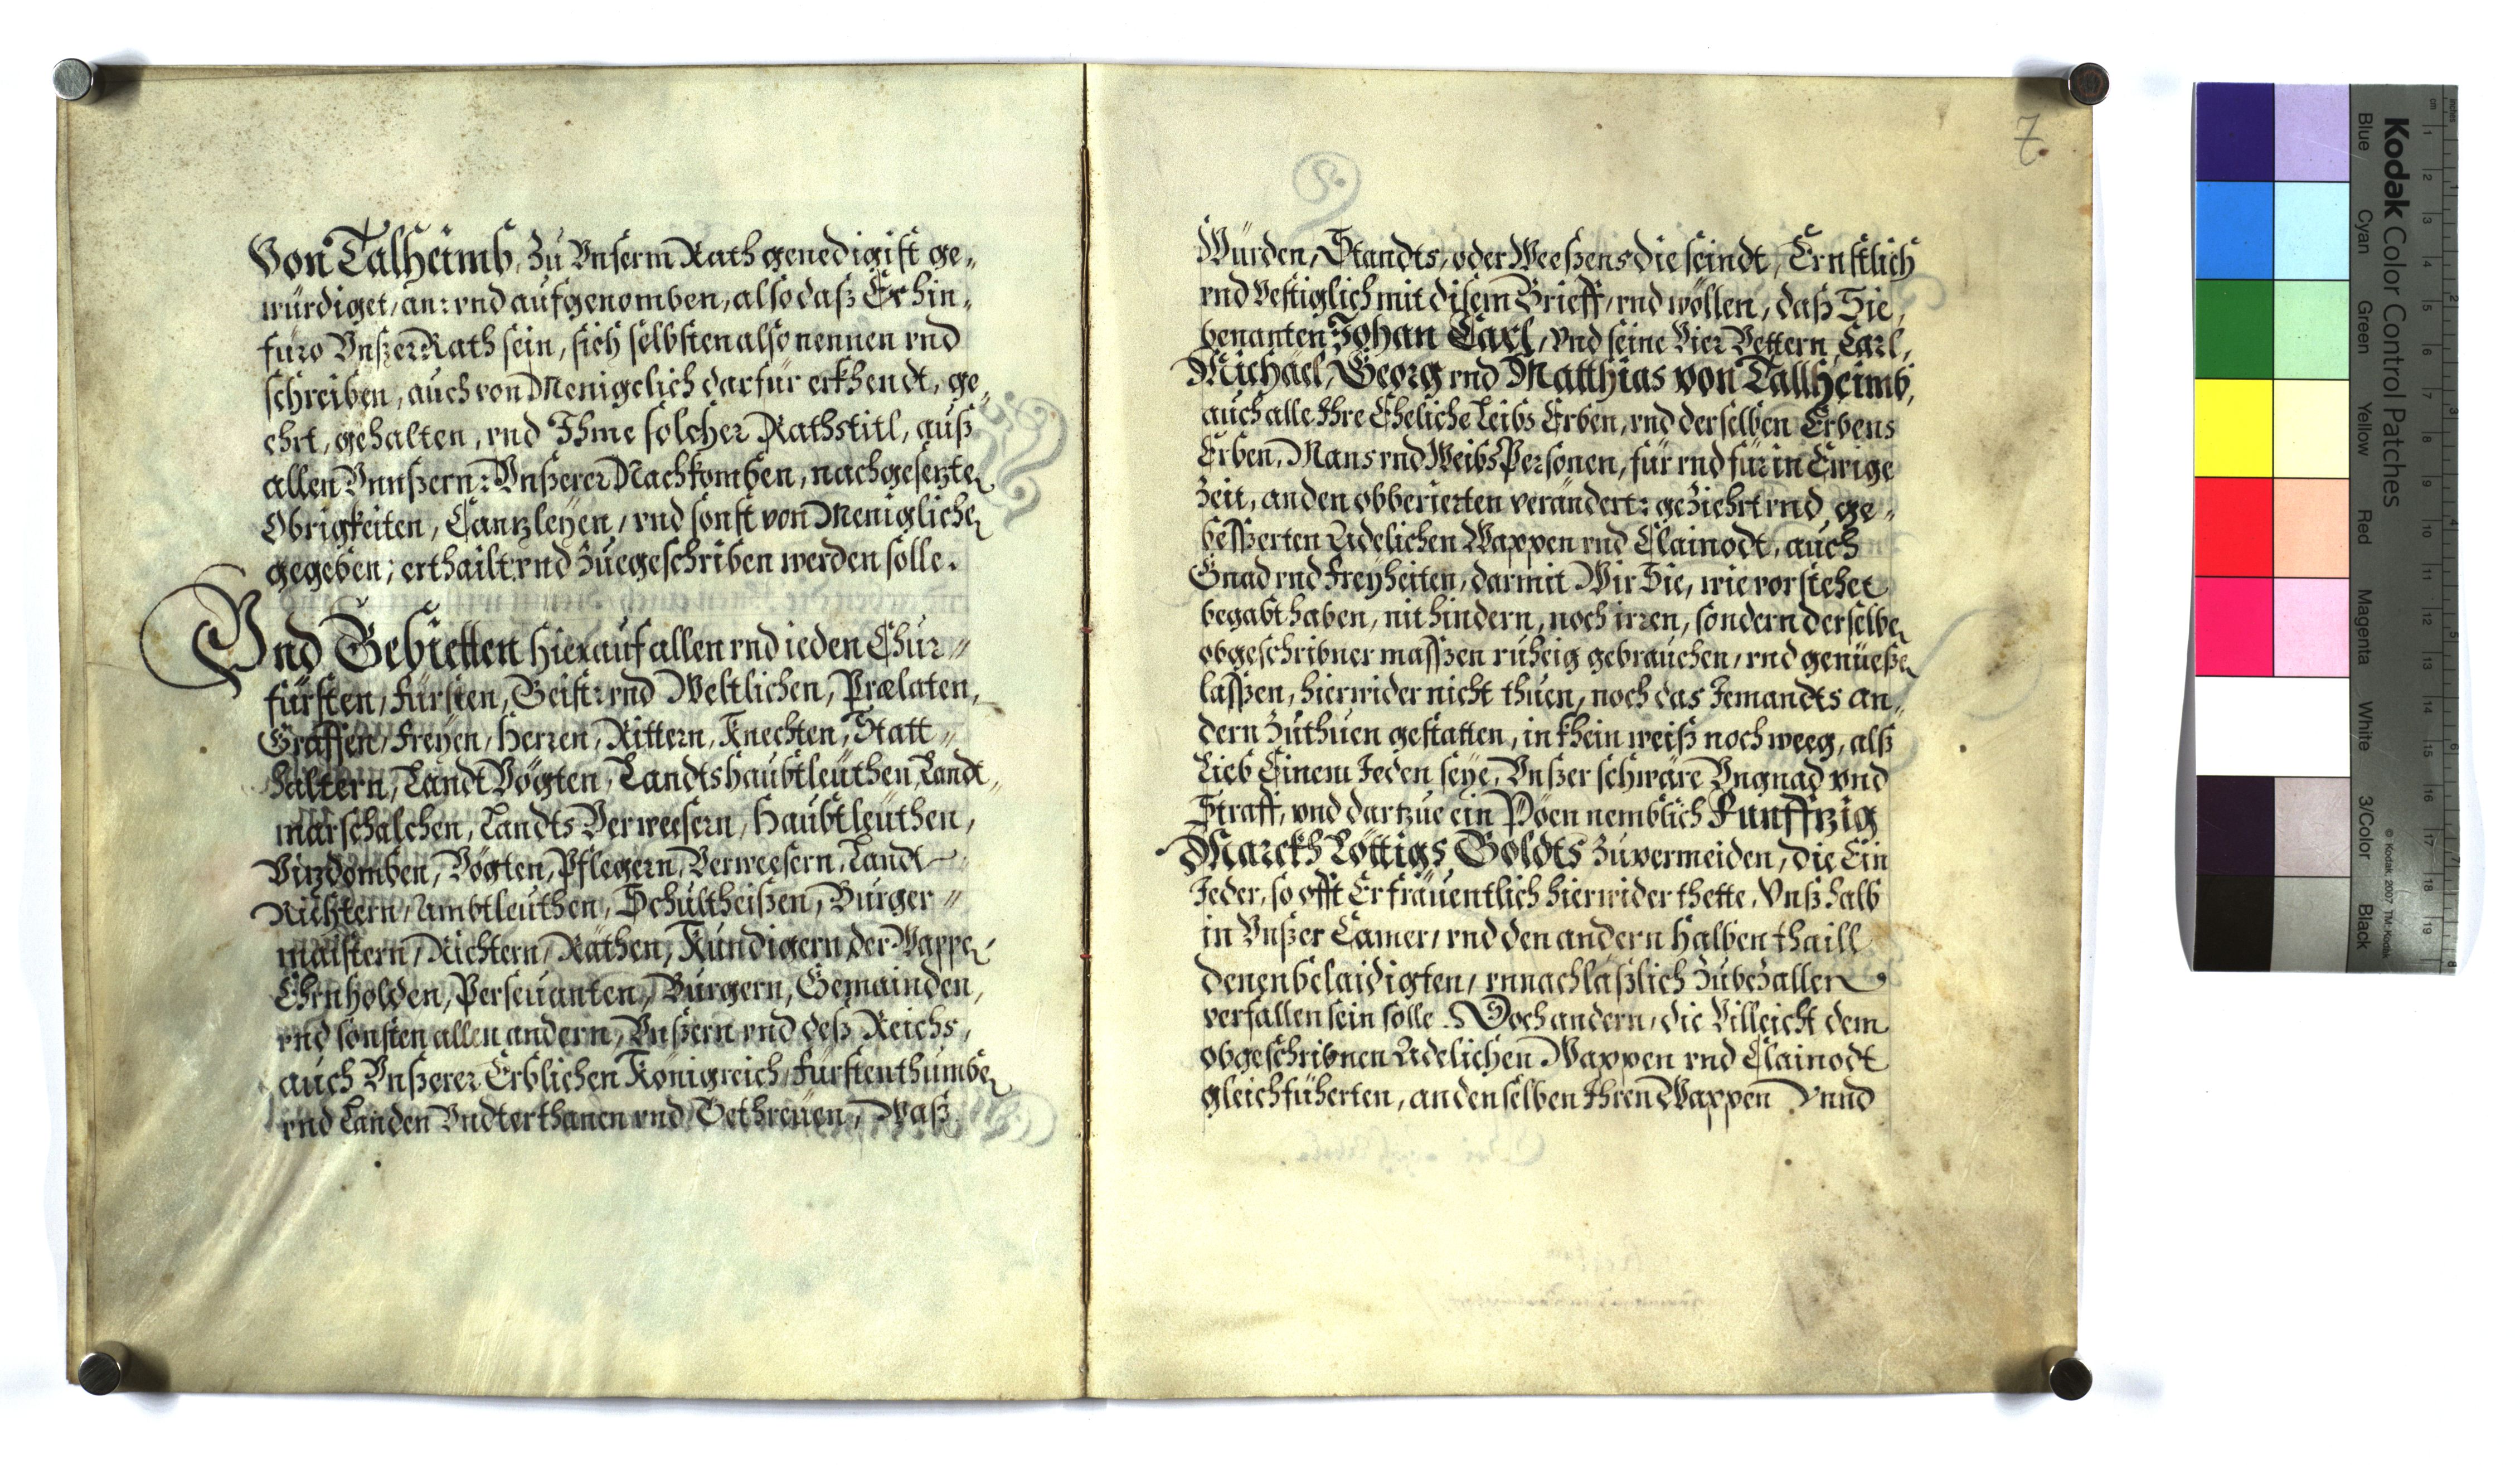 Von Talheimb, Zu Vnserm Rath genedigist ge„
würdiget, an: vnd aufgenomben, also daß Er hin„
füro Vnßer Rath sein, sich selbsten also nennen vnd
schreiben, auch von Menigelich darfür erkhendt, ge„
ehrt, gehalten, vnd Ihme solcher Rathstitl, auß
allen Vnnßern: Vnßerer Nachkomben, nachgesezte
Obrigkeiten, Cantzleyen, vnd sonst von Menigliche
gegeben; erthailt vnd Zuegeschriben werden solle.
Vnd Gebietten hierauf allen vnd ieden Chur„
fürsten, Fürsten, Geist: vnd Weltlichen, Prælaten,
Graffen, Freyen, Herren, Rittern, Knechten, Statt„
haltern, LandtVögten, Landtshaubtleüthen, Landt„
marschalchen, Landts Verweesern, Haubtleüthen,
Vizdomben, Vögten, Pflegern, Verweesern, Landt
Richtern, Ambtleuthen, Schultheißen, Burger„
maistern, Richtern, Räthen, Kündigern der Wappe
Ehrnholden, Perseuanten, Burgern, Gemainden,
vnd sonsten allen andern, Vnßern vnd deß Reichs,
auch Vnßerer Erblichen Königreich, Fürstenthumbe
vnd Landen Vndterthanen vnd Gethreüen, Waß
7.
Würden, Standts, oder Weeßens die seindt, Ernstlich
vnd Vestiglich mit disem Brieff, vnd wöllen, daß Sie,
benanten Johan Carl, Vnd seine Vier Vettern, Carl,
Michäel, Georg vnd Matthias von Tallheimb,
auch alle Ihre Eheliche Leibs Erben, vnd derselben Erbens
Erben, Mans vnd Weibs Persönen, für vnd für in Ewige
Zeit, an den obberierten verändert: geziehrt vnd ge„
besserten Adelichen Wappen vnd Clainodt, auch
Gnad vnd Freyheiten, darmit Wir Sie, wie vorstehet
begabt haben, nit hindern, noch irren, sondern derselbe
obgeschribner massen ruheig gebrauchen, vnd genüeße
lassen, hierwider nicht thuen, noch das Jemandts an„
dern Zuthuen gestatten, in khein weiß noch weeg, alß
Lieb Einem Jeden seye, Vnßer schwäre Vngnad vnd
Straff, vnd dartzue ein Pöen nemblich Funffzig
Marckh Löttigs Goldts Zuvermeiden, die Ein
Jeder, so offt Er fräuentlich hierwider thette, Vnß halb
in Vnßer Camer, vnd den andern halben thaill
denen belaidigten, vnnachläßlich Zubezallen
verfallen sein solle. Doch andern, die Villeicht dem
obgeschribnen Adelichen Wappen vnd Clainodt
gleich füherten, an denselben Ihren Wappen Vnnd
Kodak Color Control Patches
Blue
Cyan
Green
Yellow
Red
Magenta
White
3/Color
Black
© Kodak, 2007 TM: Kodak